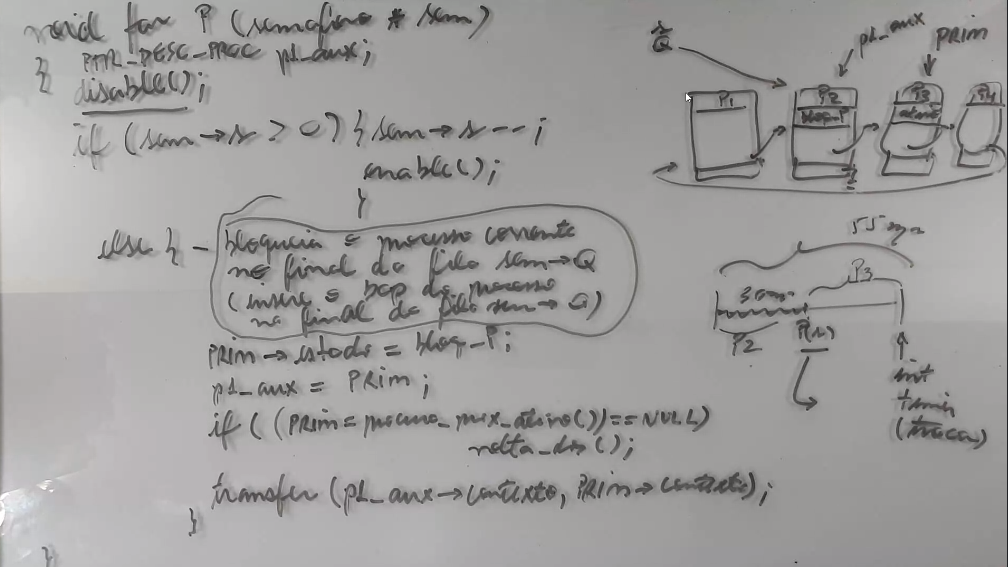 void far P (semaforo * sem)
{ PTR_DESC_PROC p1_aux;
disable();
if (sem→s > 0) { sem→s--;
enable();
}
else { - bloqueia o processo corrente
no final da fila sem→Q
(insere o bcp do processo
no final da fila sem→Q)
PRIM→estado = bloq_P;
p1_aux = PRIM;
if ((PRIM = procura_prox_ativo()) == NULL)
volta_dos();
transfer (p1_aux→contexto, PRIM→contexto);
}
}
s
Q
p1_aux
PRIM
P1
P2
bloq_P
P3
ativo
P4
55 ms
P3
30 ms
P2
P(s)
int
timer